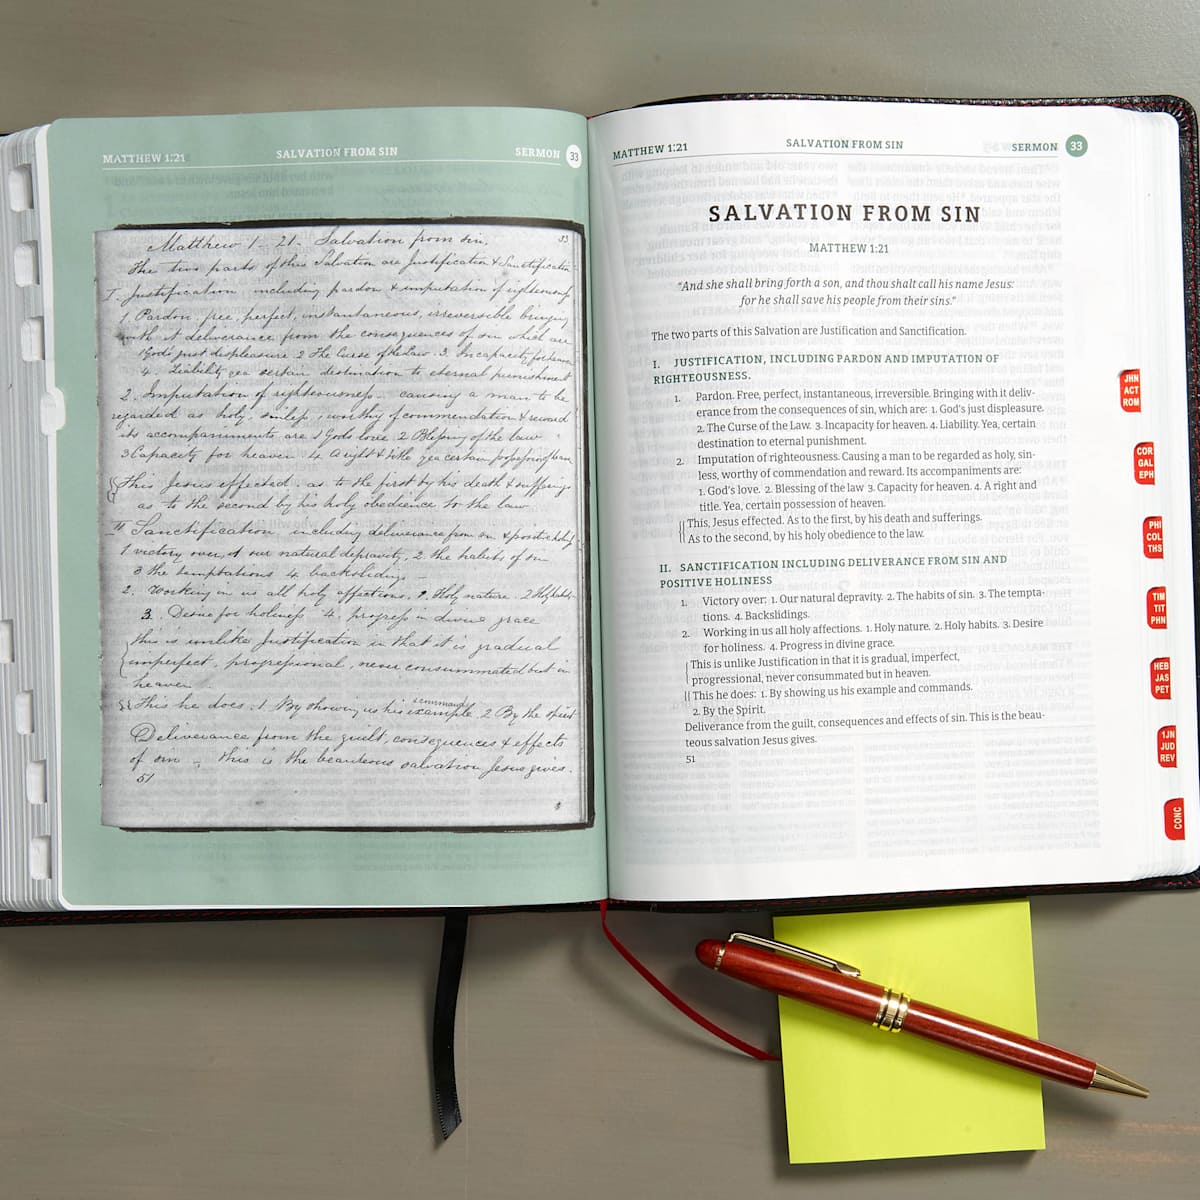 MATTHEW 1:21 SALVATION FROM SIN SERMON 33
Matthew 1-21- Salvation from sin. 33
The two parts of this Salvation are Justification & Sanctification
I. Justification including pardon & imputation of righteousness
1. Pardon. free, perfect, instantaneous, irreversible bringing
with it deliverance from the consequences of sin which are
1 Gods just displeasure 2 The Curse of the Law. 3. Incapacity for heaven
4. Liability yea certain destination to eternal punishment
2. Imputation of righteousness. causing a man to be
regarded as holy, sinless, worthy of commendation & reward
its accompaniments are 1 Gods love 2 Blessing of the law
3 Capacity for heaven 4 A right & title yea certain possession of heaven
This Jesus effected. as to the first by his death & sufferings
as to the second by his holy obedience to the law
II Sanctification including deliverance from sin & positive holiness
1 victory over, 1 our natural depravity, 2. the habits of sin
3 the temptations 4. backslidings
2. Working in us all holy affections. 1. Holy nature. 2 Holy habits
3. Desire for holiness 4. progress in divine grace
this is unlike Justification in that it is gradual
imperfect, progressional, never consummated but in
heaven
commands
This he does. 1 By showing us his example, 2 By the spirit
Deliverance from the guilt, consequences & effects
of sin - this is the beauteous salvation Jesus gives.
51
MATTHEW 1:21 SALVATION FROM SIN SERMON 33
SALVATION FROM SIN
MATTHEW 1:21
“And she shall bring forth a son, and thou shalt call his name Jesus:
for he shall save his people from their sins.”
The two parts of this Salvation are Justification and Sanctification.
I. JUSTIFICATION, INCLUDING PARDON AND IMPUTATION OF
RIGHTEOUSNESS.
1. Pardon. Free, perfect, instantaneous, irreversible. Bringing with it deliv-
erance from the consequences of sin, which are: 1. God's just displeasure.
2. The Curse of the Law. 3. Incapacity for heaven. 4. Liability. Yea, certain
destination to eternal punishment.
2. Imputation of righteousness. Causing a man to be regarded as holy, sin-
less, worthy of commendation and reward. Its accompaniments are:
1. God's love. 2. Blessing of the law 3. Capacity for heaven. 4. A right and
title. Yea, certain possession of heaven.
This, Jesus effected. As to the first, by his death and sufferings.
As to the second, by his holy obedience to the law.
II. SANCTIFICATION INCLUDING DELIVERANCE FROM SIN AND
POSITIVE HOLINESS
1. Victory over: 1. Our natural depravity. 2. The habits of sin. 3. The tempta-
tions. 4. Backslidings.
2. Working in us all holy affections. 1. Holy nature. 2. Holy habits. 3. Desire
for holiness. 4. Progress in divine grace.
This is unlike Justification in that it is gradual, imperfect,
progressional, never consummated but in heaven.
This he does: 1. By showing us his example and commands.
2. By the Spirit.
Deliverance from the guilt, consequences and effects of sin. This is the beau-
teous salvation Jesus gives.
51
JHN
ACT
ROM
COR
GAL
EPH
PHI
COL
THS
TIM
TIT
PHN
HEB
JAS
PET
1JN
JUD
REV
CONC